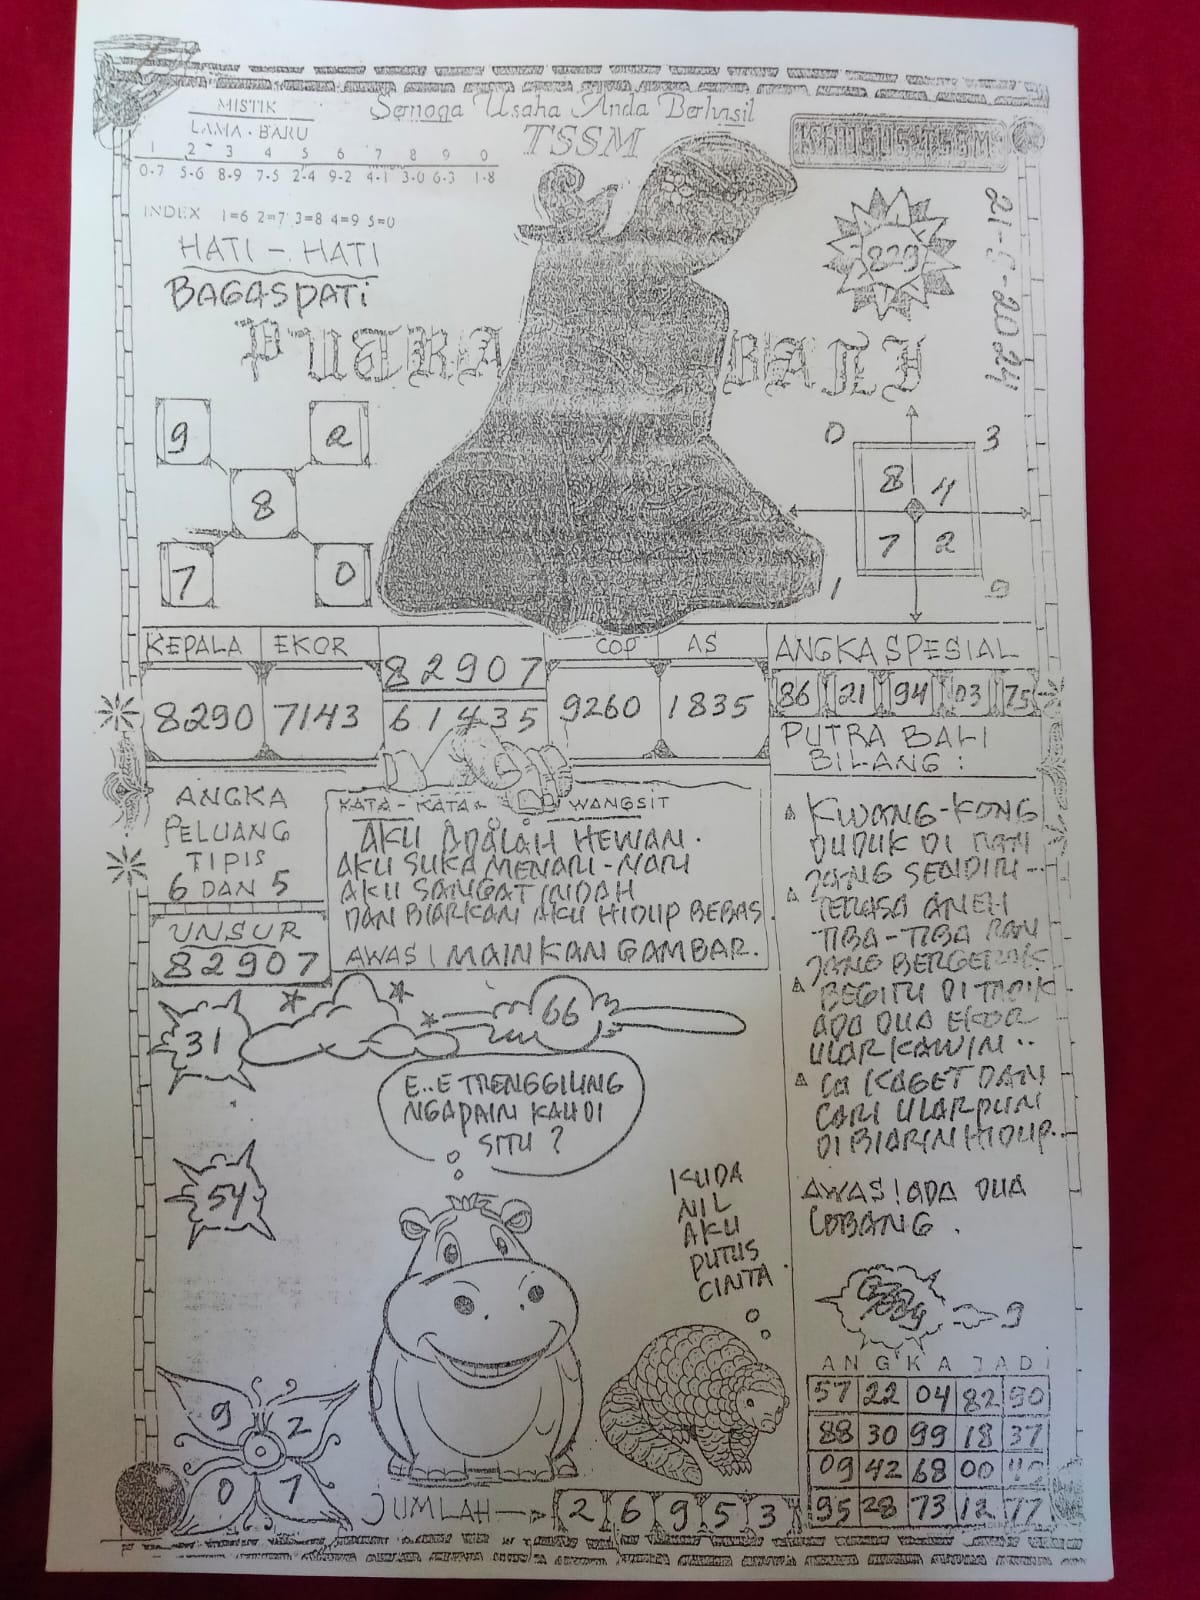 MISTIK
LAMA - BARU
1 2 3 4 5 6 7 8 9 0
0-7 5-6 8-9 7-5 2-4 9-2 4-1 3-0 6-3 1-8
INDEX 1=6 2=7 3=8 4=9 5=0
Semoga Usaha Anda Berhasil
TSSM
KHUSUS TSSM
21-5-2024
829
HATI - HATI
BAGASPATI
PUTRA BALI
9 2
8
7 0
0 3
8 4
7 2
1 9
KEPALA EKOR
8290 7143
82907
61435
COP AS
9260 1835
ANGKA SPESIAL
86 21 94 03 75
PUTRA BALI
BILANG :
ANGKA
PELUANG
TIPIS
6 DAN 5
UNSUR
82907
KATA - KATA WANGSIT
AKU ADALAH HEWAN.
AKU SUKA MENARI-NARI
AKU SANGAT INDAH
DAN BIARKAN AKU HIDUP BEBAS.
AWAS! MAINKAN GAMBAR.
KWANG-KONG
DUDUK DI
YANG SENDIRI--
TERASA ANEH
TIBA-TIBA
YANG BERGERAK
BEGITU DI
ADA DUA EKOR
ULAR KAWIN..
KAGET DAN
CARI ULARPUN
DI BIARIN HIDUP..
AWAS! ADA DUA
LOBANG.
31
66
54
E..E TRENGGILING
NGAPAIN KAU DI
SITU ?
KUDA
NIL
AKU
PUTUS
CINTA.
9
ANGKA JADI
57 22 04 82 90
88 30 99 18 37
09 42 68 00
95 28 73 12 77
9 2
0 7
JUMLAH 2 6 9 5 3